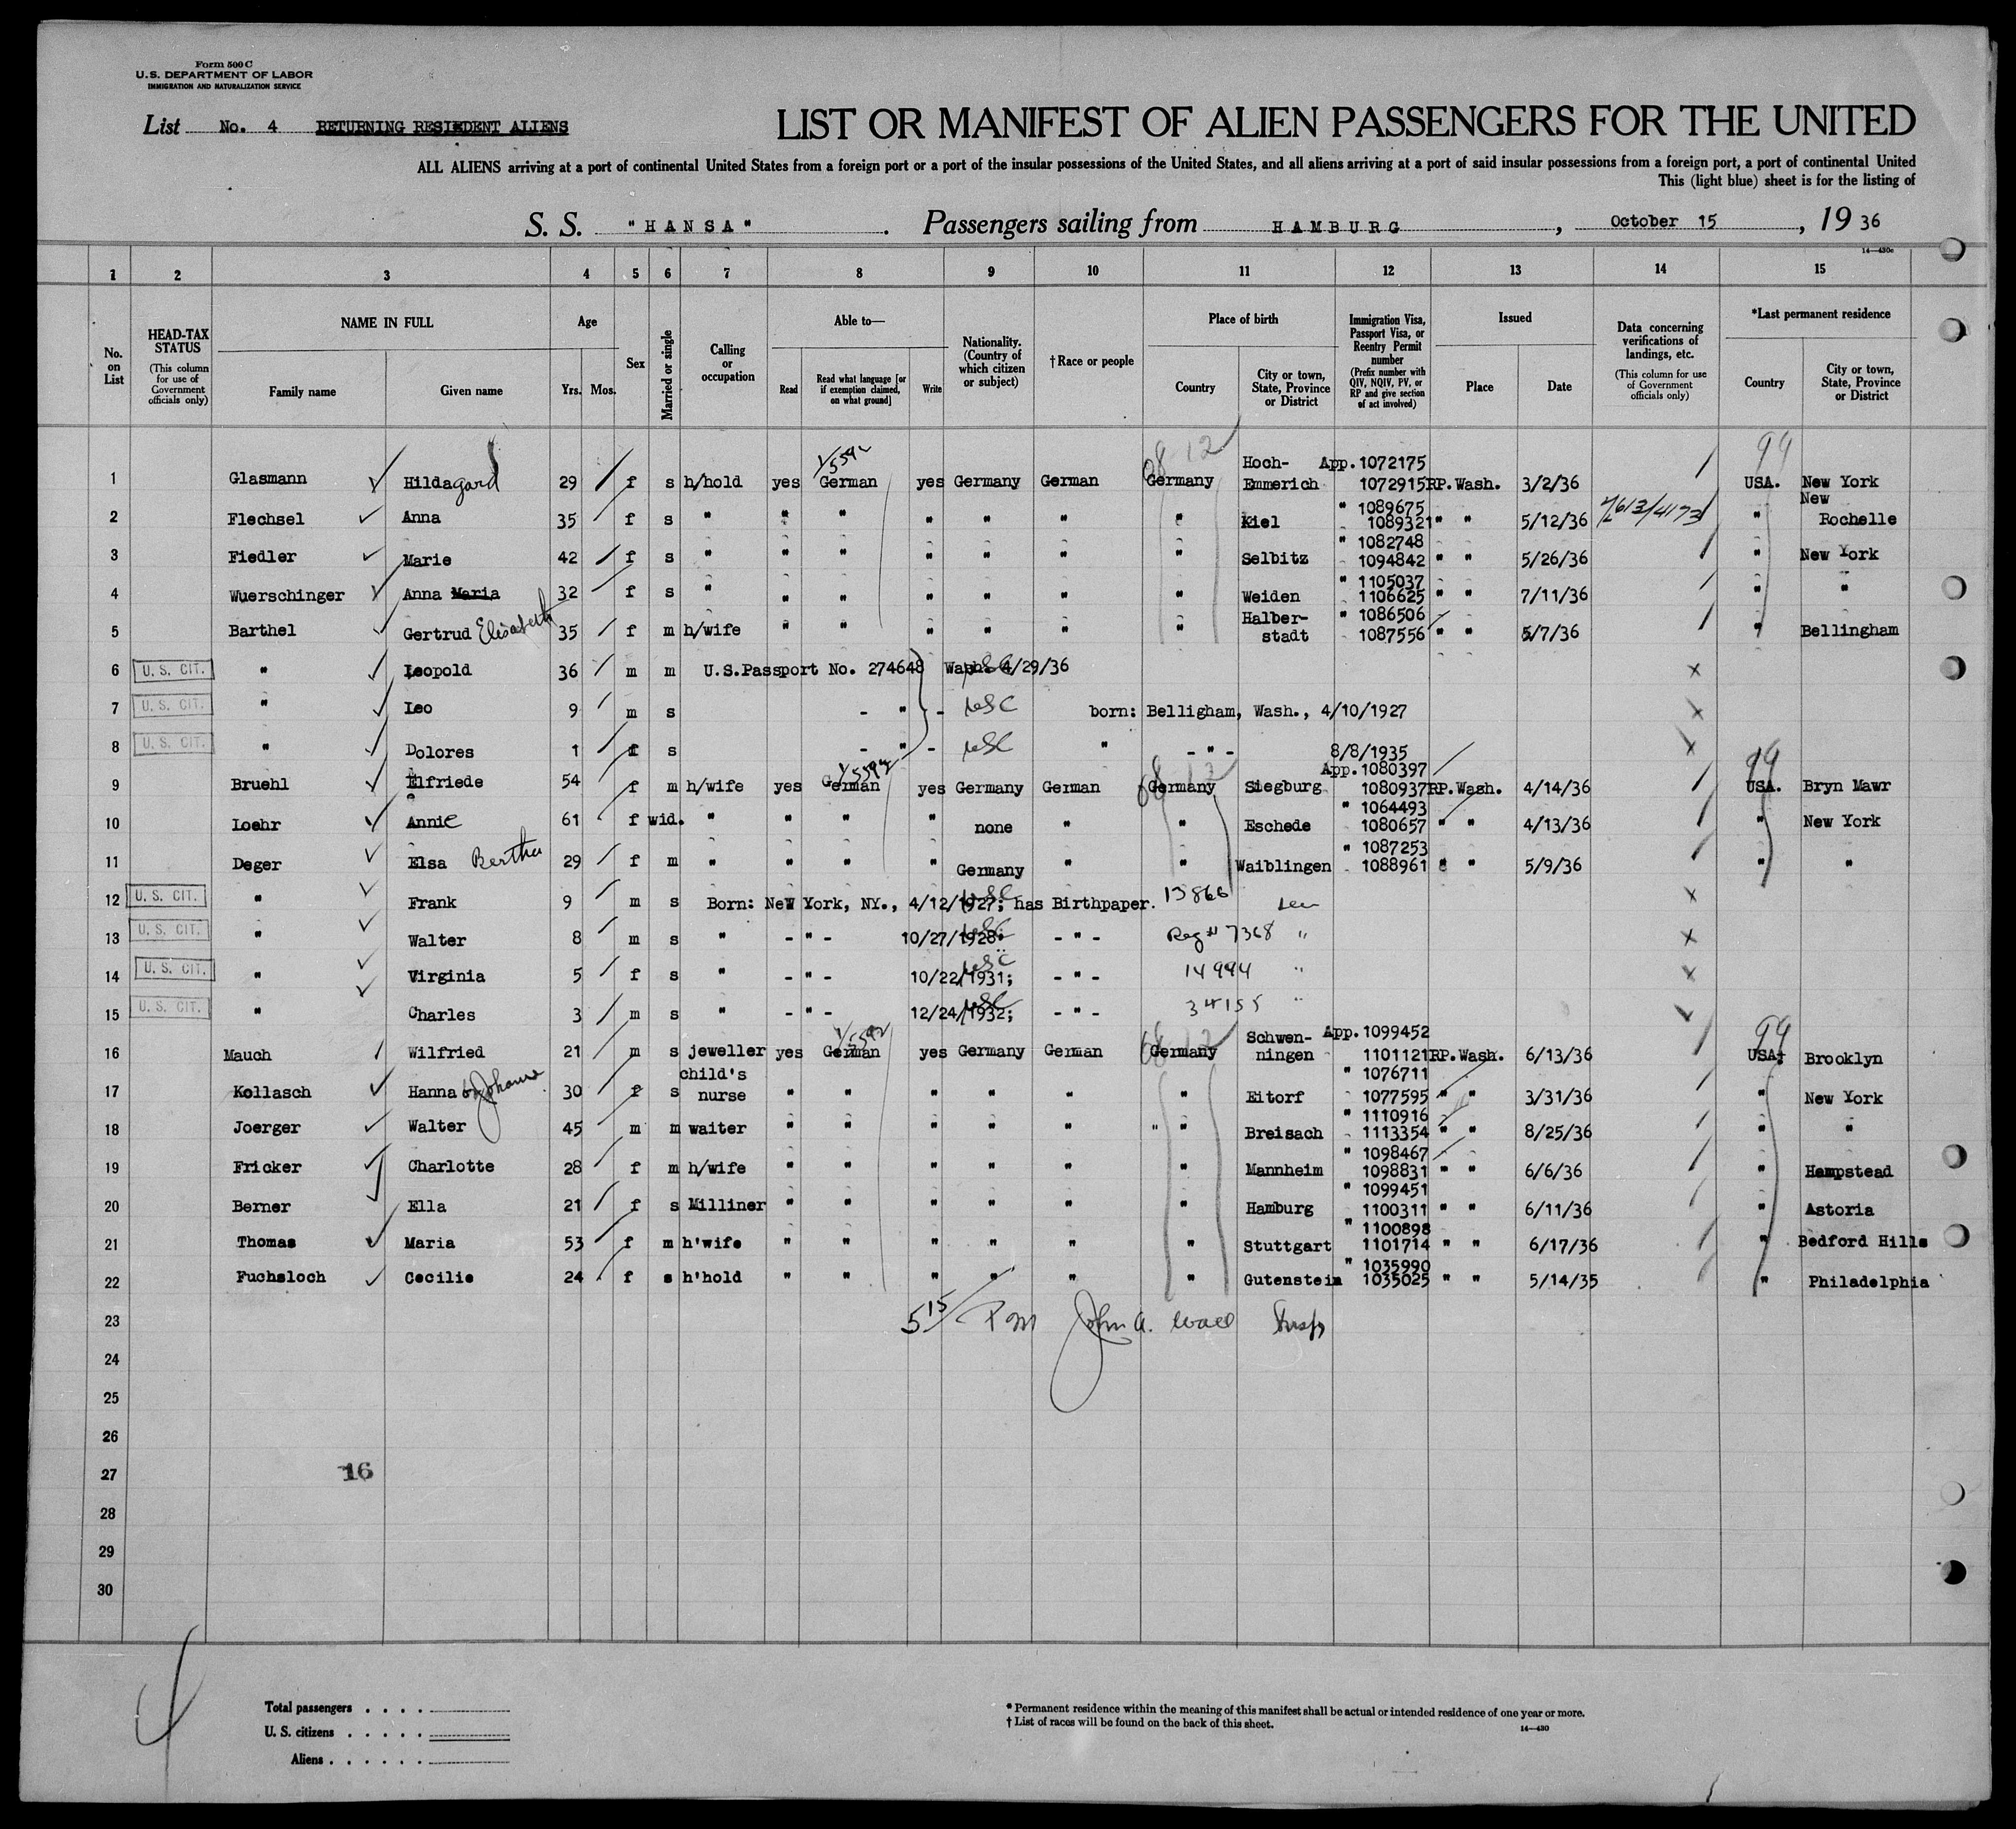 Form 500 C
U.S. DEPARTMENT OF LABOR
IMMIGRATION AND NATURALIZATION SERVICE
List No. 4 RETURNING RESIDENT ALIENS
LIST OR MANIFEST OF ALIEN PASSENGERS FOR THE UNITED
ALL ALIENS arriving at a port of continental United States from a foreign port or a port of the insular possessions of the United States, and all aliens arriving at a port of said insular possessions from a foreign port, a port of continental United
This (light blue) sheet is for the listing of
S. S. "HANSA". Passengers sailing from HAMBURG, October 15, 1936
14—430c
1 2 3 4 5 6 7 8 9 10 11 12 13 14 15
No. on List
HEAD-TAX STATUS (This column for use of Government officials only)
NAME IN FULL Family name Given name
Age Yrs. Mos.
Sex
Married or single
Calling or occupation
Able to— Read Read what language [or if exemption claimed, on what ground] Write
Nationality. (Country of which citizen or subject)
† Race or people
Place of birth Country City or town, State, Province or District
Immigration Visa, Passport Visa, or Reentry Permit number (Prefix number with QIV, NQIV, PV, or RP and give section of act involved)
Issued Place Date
Data concerning verifications of landings, etc. (This column for use of Government officials only)
*Last permanent residence Country City or town, State, Province or District
1 Glasmann Hildagard 29 f s h/hold yes German yes Germany German Germany Hoch-Emmerich App. 1072175 1072915 RP. Wash. 3/2/36 USA. New York
2 Flechsel Anna 35 f s " " " " " " " Kiel " 1089675 1089321 " " 5/12/36 " New Rochelle
3 Fiedler Marie 42 f s " " " " " " " Selbitz " 1082748 1094842 " " 5/26/36 " New York
4 Wuerschinger Anna Maria 32 f s " " " " " " " Weiden " 1105037 1106625 " " 7/11/36 " "
5 Barthel Gertrud Elisabeth 35 f m h/wife " " " " " " Halber-stadt " 1086506 1087556 " " 5/7/36 " Bellingham
6 U. S. CIT. " Leopold 36 m m U.S.Passport No. 274648 Wash. 4/29/36 x
7 U. S. CIT. " Leo 9 m s - " - USC born: Belligham, Wash., 4/10/1927 x
8 U. S. CIT. " Dolores 1 f s - " - USC " - " - 8/8/1935 x
9 Bruehl Elfriede 54 f m h/wife yes German yes Germany German Germany Siegburg App. 1080397 1080937 RP. Wash. 4/14/36 USA. Bryn Mawr
10 Loehr Annie 61 f wid. " " " " none " " Eschede " 1064493 1080657 " " 4/13/36 " New York
11 Deger Elsa Bertha 29 f m " " " " Germany " " Waiblingen " 1087253 1088961 " " 5/9/36 " "
12 U. S. CIT. " Frank 9 m s Born: New York, NY., 4/12/1927; has Birthpaper. 13866 x
13 U. S. CIT. " Walter 8 m s " - " - 10/27/1928: - " - Reg # 7368 " x
14 U. S. CIT. " Virginia 5 f s " - " - 10/22/1931; - " - 14994 " x
15 U. S. CIT. " Charles 3 m s " - " - 12/24/1932; - " - 34155 "
16 Mauch Wilfried 21 m s jeweller yes German yes Germany German Germany Schwen-ningen App. 1099452 1101121 RP. Wash. 6/13/36 USA. Brooklyn
17 Kollasch Hanna 30 f s child's nurse " " " " " " Eitorf " 1076711 1077595 " " 3/31/36 " New York
18 Joerger Walter 45 m m waiter " " " " " " Breisach " 1110916 1113354 " " 8/25/36 " "
19 Fricker Charlotte 28 f m h/wife " " " " " " Mannheim " 1098467 1098831 " " 6/6/36 " Hempstead
20 Berner Ella 21 f s Milliner " " " " " " Hamburg " 1099451 1100311 " " 6/11/36 " Astoria
21 Thomas Maria 53 f m h'wife " " " " " " Stuttgart " 1100898 1101714 " " 6/17/36 " Bedford Hills
22 Fuchsloch Cecilie 24 f s h'hold " " " " " " Gutenstein " 1035990 1035025 " " 5/14/35 " Philadelphia
23 5 15 PM John A.
24
25
26
27 16
28
29
30
Total passengers . . . .
U. S. citizens . . . . .
Aliens . . . . . .
* Permanent residence within the meaning of this manifest shall be actual or intended residence of one year or more.
† List of races will be found on the back of this sheet.
14—430